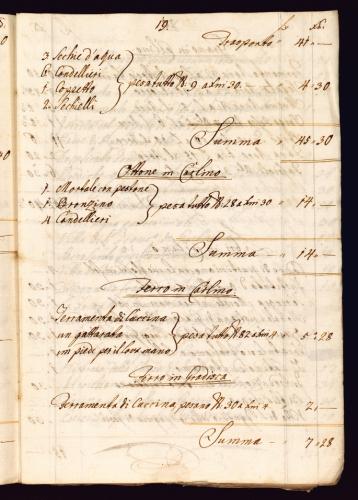 19.
Trasporto 41 „ —
3 Sechie d'aqua
6 Candellieri
1 Copetto
2 Sechielli
pesa tutto lb 9 a lm 30. — 4 „ 30
Summa — 45 „ 30
Ottone in Colmo
1 Mortale con pestone
1 Bronzino
4 Candellieri
pesa tutto lb 28 a lm 30 14 „ —
Summa — 14 „ —
Ferro in Colmo.
Ferramenta di Cucina
un gattarata
un piede per il
pesa tutto lb 82 a lm 4 5 „ 28
Ferro in Gradisca
Ferramenta di Cucina, pesano lb 30 a lm 4 2 „ —
Summa — 7 „ 28